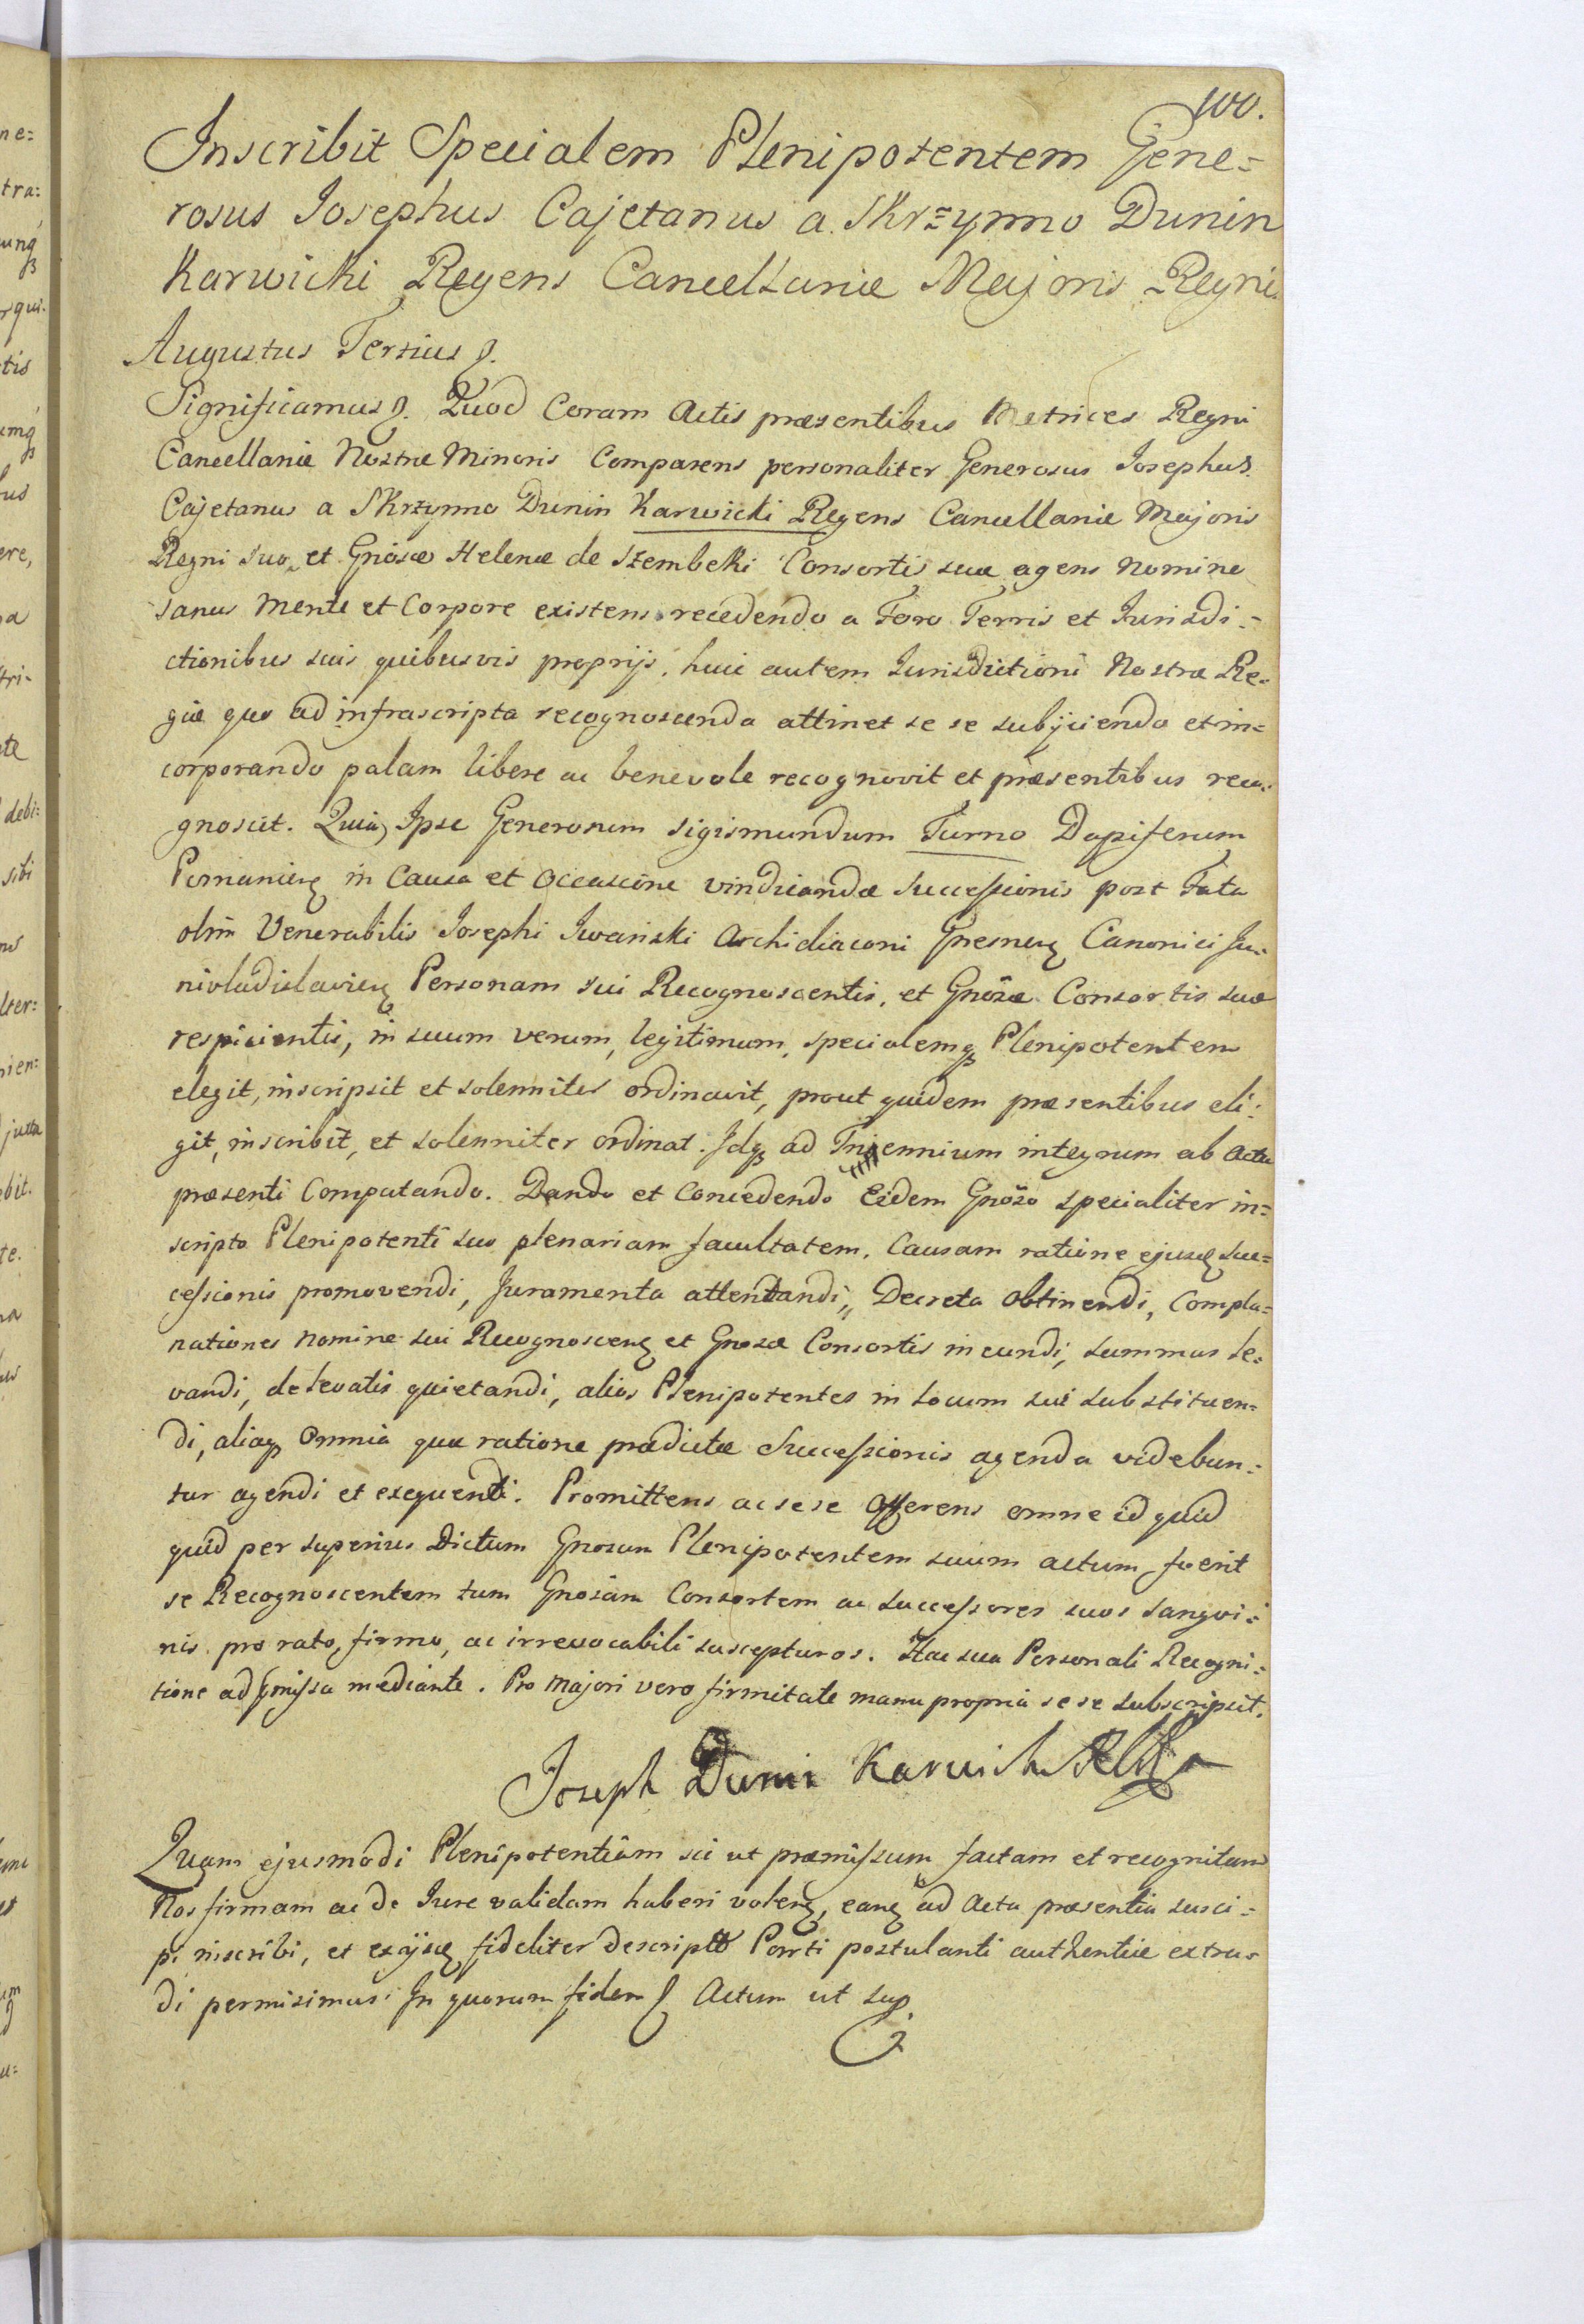 100.
Inscribit Specialem Plenipotentem Gene=
rosus Josephus Cajetanus a Skrzynno Dunin
Karwicki Regens Cancellariæ Majoris Regni
Augustus Tertius
Significamus Quod Coram Actis præsentibus Metrices Regni
Cancellariæ Nostræ Minoris Comparens personaliter Generosus Josephus
Cajetanus a Skrzynno Dunin Karwicki Regens Cancellariæ Majoris
Regni suo, et Gnosæ Helenæ de Szembeki Consortis suæ agens Nomine
sanus Mente et Corpore existens recedendo a Foro Terris et Jurisdi=
ctionibus suis quibusvis proprijs, huic autem Jurisdictioni Nostræ Re=
giæ quo ad infrascripta recognoscenda attinet se se subijciendo et in=
corporando palam libere ac benevole recognovit et præsentibus reco=
gnoscit. Quia Ipse Generosum Sigismundum Turno Dapiferum
Posnanien in Causa et Occasione vindicandæ Successionis post Fata
olim Venerabilis Josephi Iwański Archidiaconi Gnesnen Canonici Ju=
nivladislavien Personam sui Recognoscentis, et Gnosæ Consortis suæ
respicientis, in suum verum, legitimum, specialemq Plenipotentem
elegit, inscripsit et solenniter ordinavit, prout quidem præsentibus eli=
git, inscribit, et solenniter ordinat. Idq ad Triennium integrum ab Actu
præsenti Computando. Dando et Concedendo Eidem Gnoso specialiter in=
scripto Plenipotenti suo plenariam facultatem, Causam ratione ejusd Suc=
cessionis promovendi, Juramenta attentandi, Decreta obtinendi, Compla=
nationes nomine sui Recognoscen et Gnosæ Consortis ineundi, summas le=
vandi, de levatis quietandi, alios Plenipotentes in Locum sui substituen=
di, aliaq omnia quæ ratione prædictæ Successionis agenda videbun=
tur agendi et exequendi. Promittens ac sese offerens omne id quid
quid per superius Dictum Gnosum Plenipotentem suum actum fuerit
se Recognoscentem tum Gnosam Consortem ac successores suos sangvi=
nis pro rato, firmo, ac irrevocabili suscepturos. Hac sua Personali Recogni=
tione ad præmissa mediante. Pro majori vero firmitate manu propria se se subscripsit.
Joseph Dunin Karwicki
Quam ejusmodi Plenipotentiam sic ut præmissum factam et recognitam
Nos firmam ac de Jure validam haberi volen, eand ad Acta præsentia susci=
pi inscribi, et ex ijsd fideliter descriptam Parti postulanti authentice extra=
di permisimus. In quorum fidem Actum ut sup.